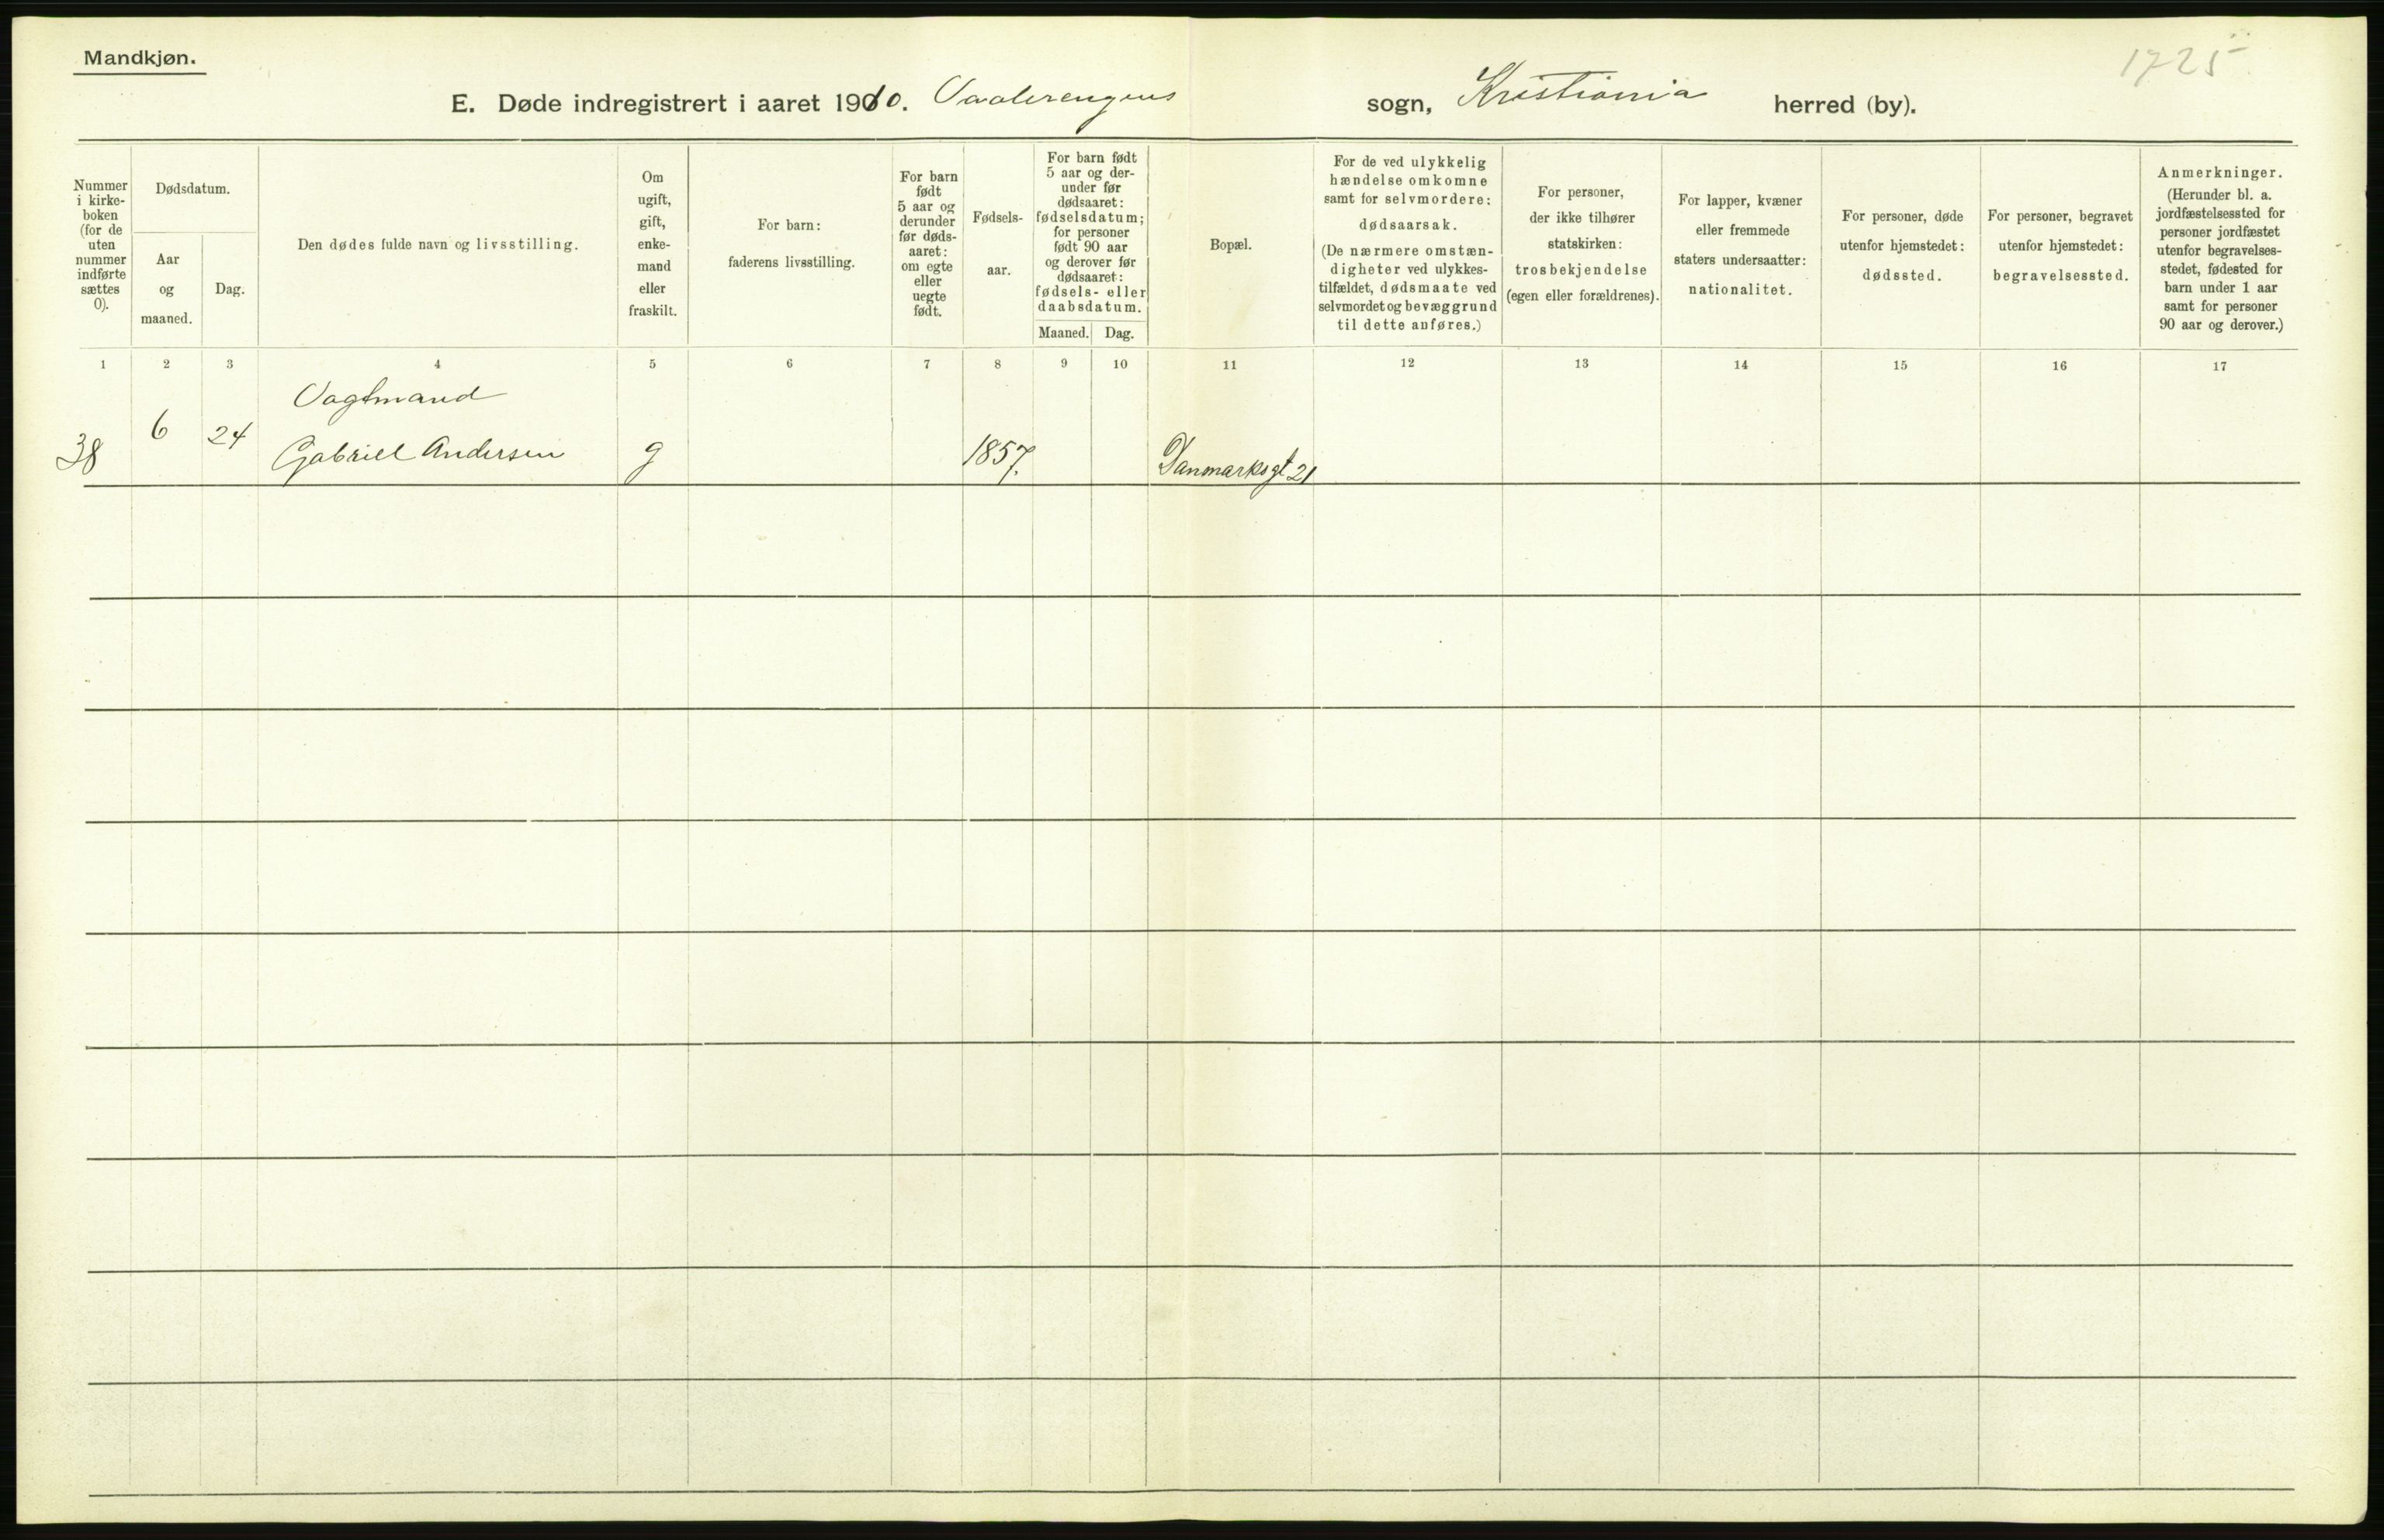 Mandkjøn.
1725
E. Døde indregistrert i aaret 1910. Vaalerengens sogn, Kristiania herred (by).
Nummer
i kirke-
boken
(for de
uten
nummer
indførte
sættes
0).
Dødsdatum.
Aar
og
maaned.
Dag.
Den dødes fulde navn og livsstilling.
Om
ugift,
gift,
enke-
mand
eller
fraskilt.
For barn:
faderens livsstilling.
For barn
født
5 aar og
derunder
før døds-
aaret:
om egte
eller
uegte
født.
Fødsels-
aar.
For barn født
5 aar og der-
under før
dødsaaret:
fødselsdatum;
for personer
født 90 aar
og derover før
dødsaaret:
fødsels- eller
daabsdatum.
Maaned.
Dag.
Bopæl.
For de ved ulykkelig
hændelse omkomne
samt for selvmordere:
dødsaarsak.
(De nærmere omstæn-
digheter ved ulykkes-
tilfældet, dødsmaate ved
selvmordet og bevæggrund
til dette anføres.)
For personer,
der ikke tilhører
statskirken:
trosbekjendelse
(egen eller forældrenes).
For lapper, kvæner
eller fremmede
staters undersaatter:
nationalitet.
For personer, døde
utenfor hjemstedet:
dødssted.
For personer, begravet
utenfor hjemstedet:
begravelsessted.
Anmerkninger.
(Herunder bl. a.
jordfæstelsessted for
personer jordfæstet
utenfor begravelses-
stedet, fødested for
barn under 1 aar
samt for personer
90 aar og derover.)
1 2 3 4 5 6 7 8 9 10 11 12 13 14 15 16 17
Vagtmand
38 6 24 Gabriel Andersen g 1857. Danmarksgt 21